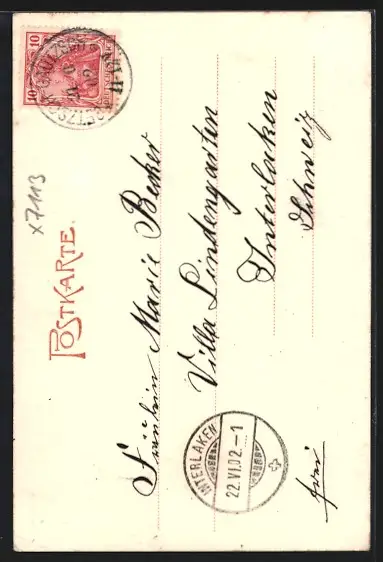 POSTKARTE.
Fräulein Marie Becker
Villa Lindengarten
Interlaken
Schweiz
frei
INTERLAKEN
22.VI.02.-1
10 10
x7113